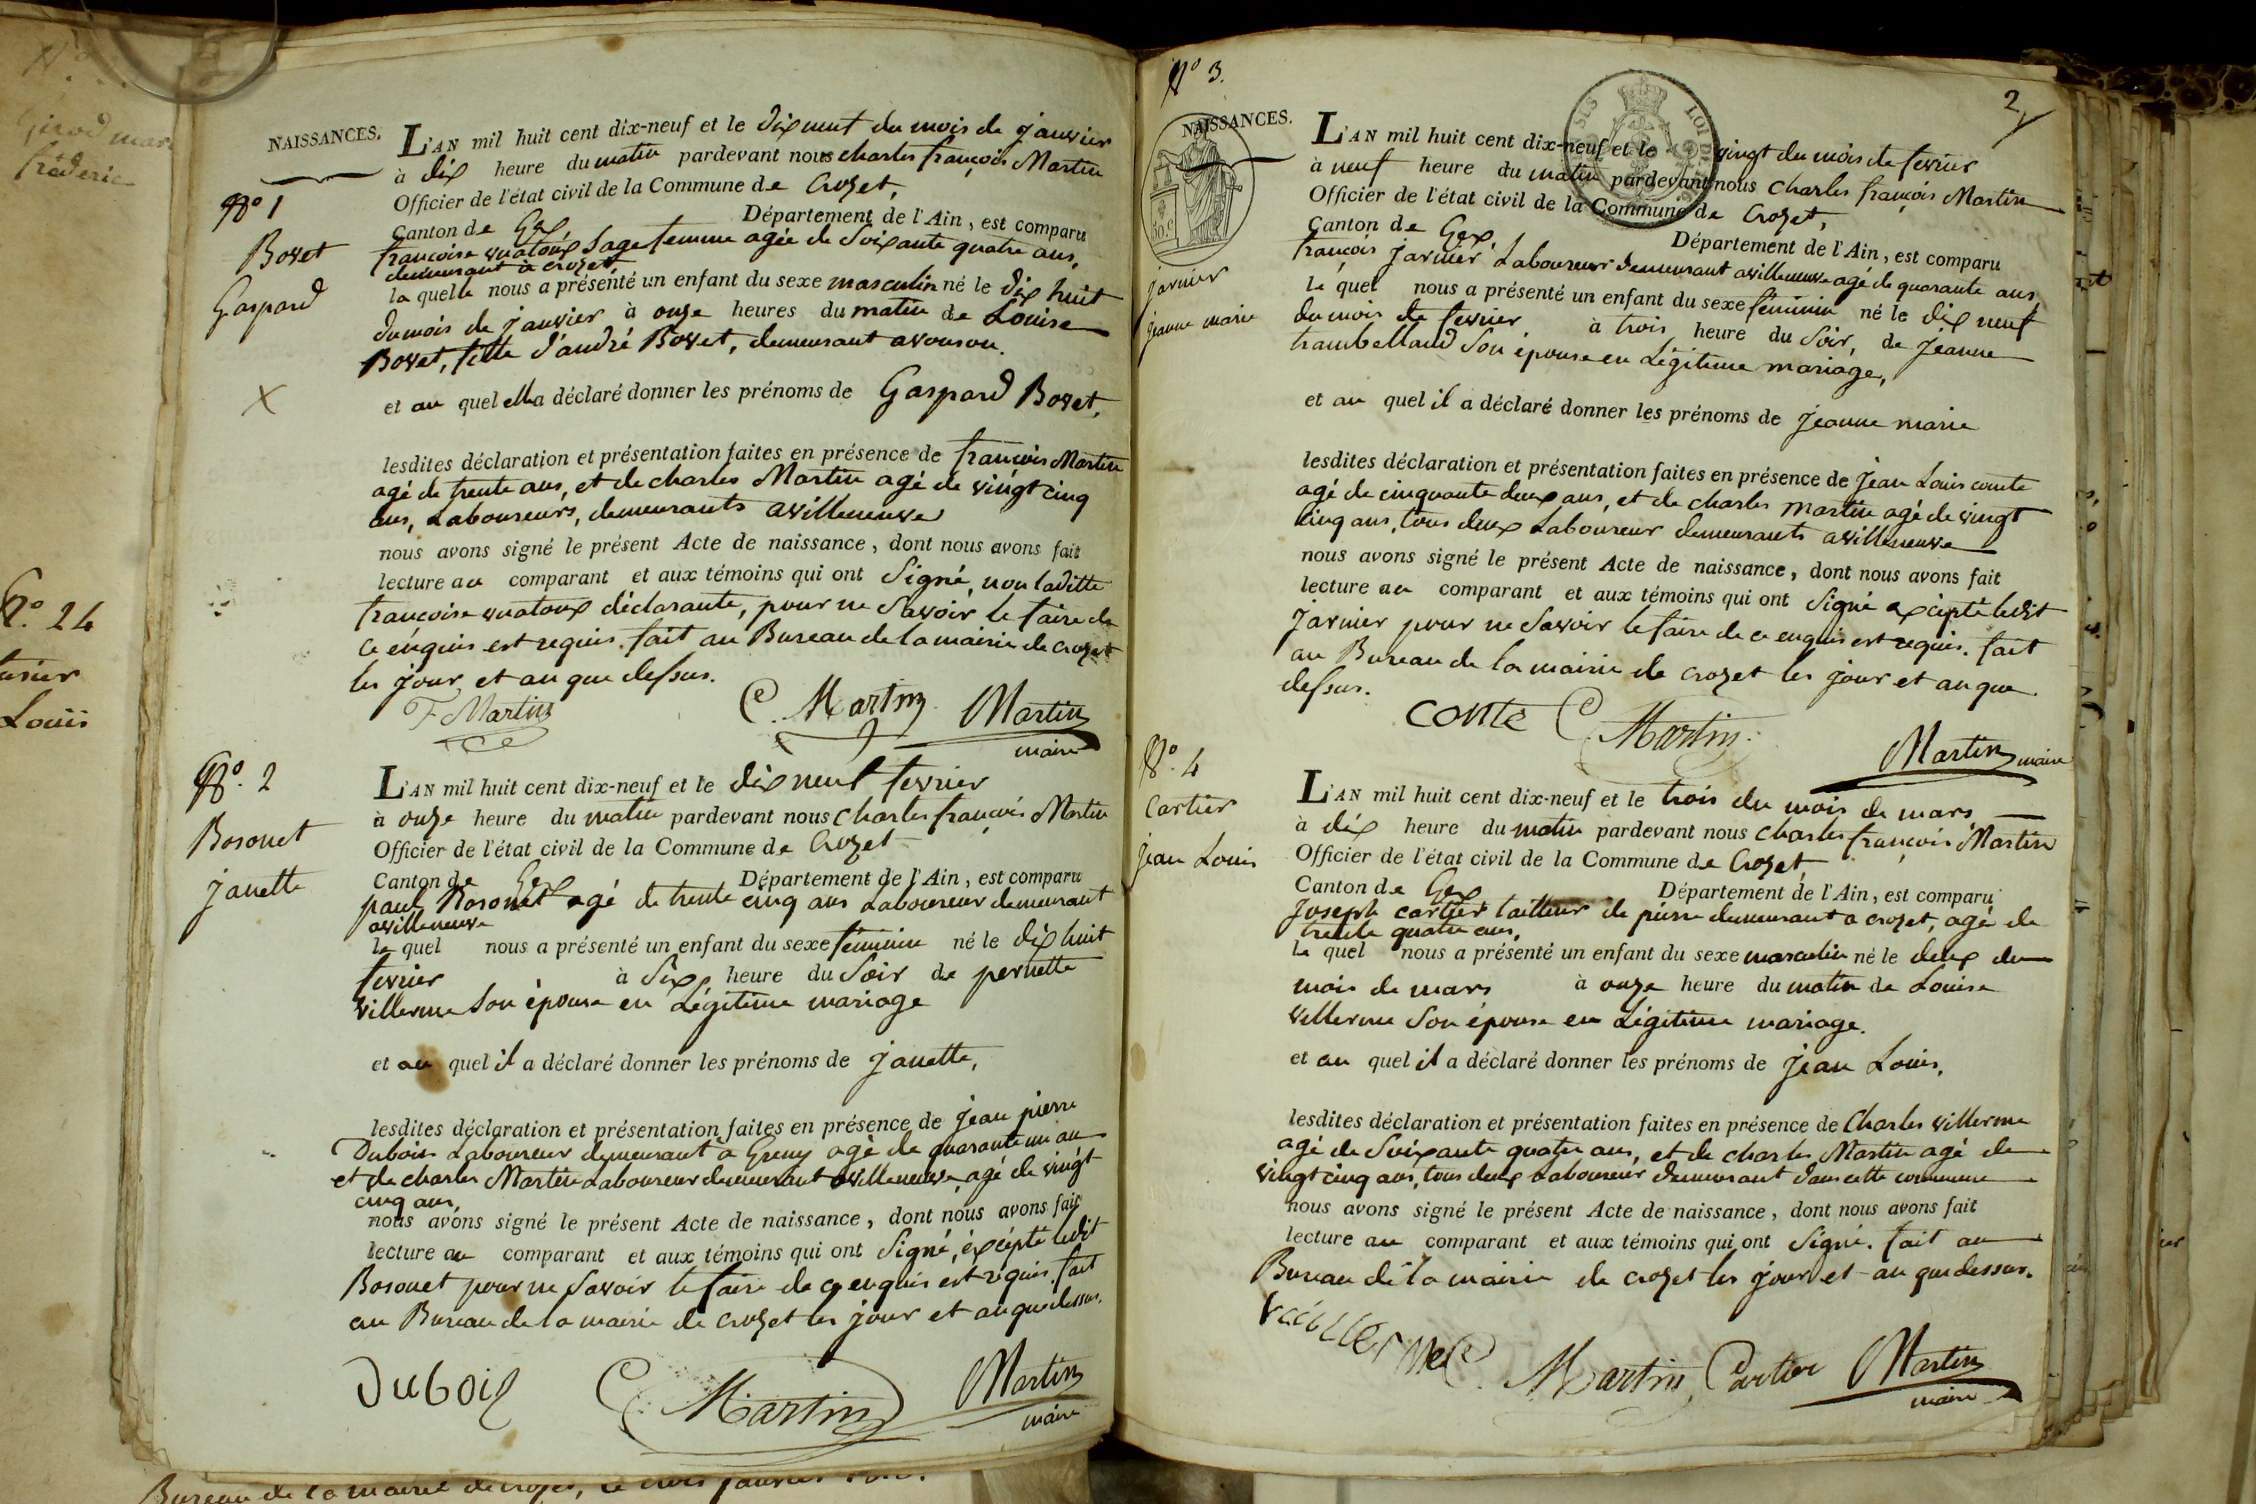 NAISSANCES.
N.o 1
Bovet
Gaspard
L'AN mil huit cent dix-neuf et le dix neuf du mois de janvier
à dix heure du matin pardevant nous charles françois Martin
Officier de l'état civil de la Commune de Crozet,
Canton de Gex, Département de l'Ain, est comparu
francoise sage femme agée de Soixante quatre ans,
demeurant à crozet,
la quelle nous a présenté un enfant du sexe masculin né le dix huit
du mois de janvier à onze heures du matin de Louise
Bovet, fille d'andré Bovet, demeurant avouson.
et au quel ella déclaré donner les prénoms de Gaspard Bovet,
lesdites déclaration et présentation faites en présence de francois Martin
agé de trente ans, et de charles Martin agé de vingt cinq
ans, Laboureurs, demeurants avilleneuve
nous avons signé le présent Acte de naissance, dont nous avons fait
lecture au comparant et aux témoins qui ont Signé, non laditte
francoise déclarante, pour ne Savoir le faire de
ce enquis est requis. fait au Bureau de la mairie de crozet
les jour et an que dessus.
F Martin C. Martin Martin
maire
N.o 2
Bosonet
janette
L'AN mil huit cent dix-neuf et le dix neuf fevrier
à onze heure du matin pardevant nous Charles françois Martin
Officier de l'état civil de la Commune de Crozet
Canton de Gex Département de l'Ain, est comparu
paul Bosonet agé de trente cinq ans Laboureur demeurant
avilleneuve
le quel nous a présenté un enfant du sexe féminin né le dix huit
fevrier à Six heure du Soir de pernette
villerme Son épouse en Légitime mariage
et au quel il a déclaré donner les prénoms de janette,
lesdites déclaration et présentation faites en présence de jean pierre
Dubois Laboureur demeurant à Greny agé de quarante un an
et de charles Martin Laboureur demeurant avilleneuve, agé de vingt
cinq ans,
nous avons signé le présent Acte de naissance, dont nous avons fait
lecture au comparant et aux témoins qui ont Signé, éxcépté ledit
Bosonet pour ne Savoir le faire de ce enquis est requis. fait
au Bureau de la mairie de crozet les jour et an que dessus.
Duboix C. Martin Martin
maire
N.o 3.
2
NAISSANCES.
jarnier
jeanne marie
L'AN mil huit cent dix-neuf et le vingt du mois de fevrier
à neuf heure du matin pardevant nous Charles françois Martin
Officier de l'état civil de la Commune de Crozet,
Canton de Gex, Département de l'Ain, est comparu
francois jarnier Laboureur demeurant avilleneuve agé de quarante ans
le quel nous a présenté un enfant du sexe féminin né le dix neuf
du mois de fevrier à trois heure du Soir, de jeanne
trambelland Son épouse en Légitime mariage,
et au quel il a déclaré donner les prénoms de jeanne marie
lesdites déclaration et présentation faites en présence de jean Louis conte
agé de cinquante deux ans, et de charles martin agé de vingt
cinq ans, tous deux Laboureur demeurants avilleneuve
nous avons signé le présent Acte de naissance, dont nous avons fait
lecture au comparant et aux témoins qui ont Signé excepté ledit
jarnier pour ne Savoir le faire de ce enquis est requis. fait
au Bureau de la mairie de crozet les jour et an que
dessus.
conte C Martin. Martin maire
N.o 4
Cartier
jean Louis
L'AN mil huit cent dix-neuf et le trois du mois de mars
à dix heure du matin pardevant nous Charles françois Martin
Officier de l'état civil de la Commune de Crozet,
Canton de Gex Département de l'Ain, est comparu
Joseph cartier tailleur de pierre demeurant a crozet, agé de
trente quatre ans,
le quel nous a présenté un enfant du sexe masculin né le deux du
mois de mars à onze heure du matin de Louise
villerme Son épouse en Légitime mariage.
et au quel il a déclaré donner les prénoms de jean Louis,
lesdites déclaration et présentation faites en présence de Charles villerme
agé de Soixante quatre ans, et de charles Martin agé de
vingt cinq ans, tous deux Laboureur demeurant dans cette commune
nous avons signé le présent Acte de naissance, dont nous avons fait
lecture au comparant et aux témoins qui ont Signé. fait au
Bureau de la mairie de crozet les jour et an que dessus.
C. Martin Cartier Martin
maire
N.o 24
Louis